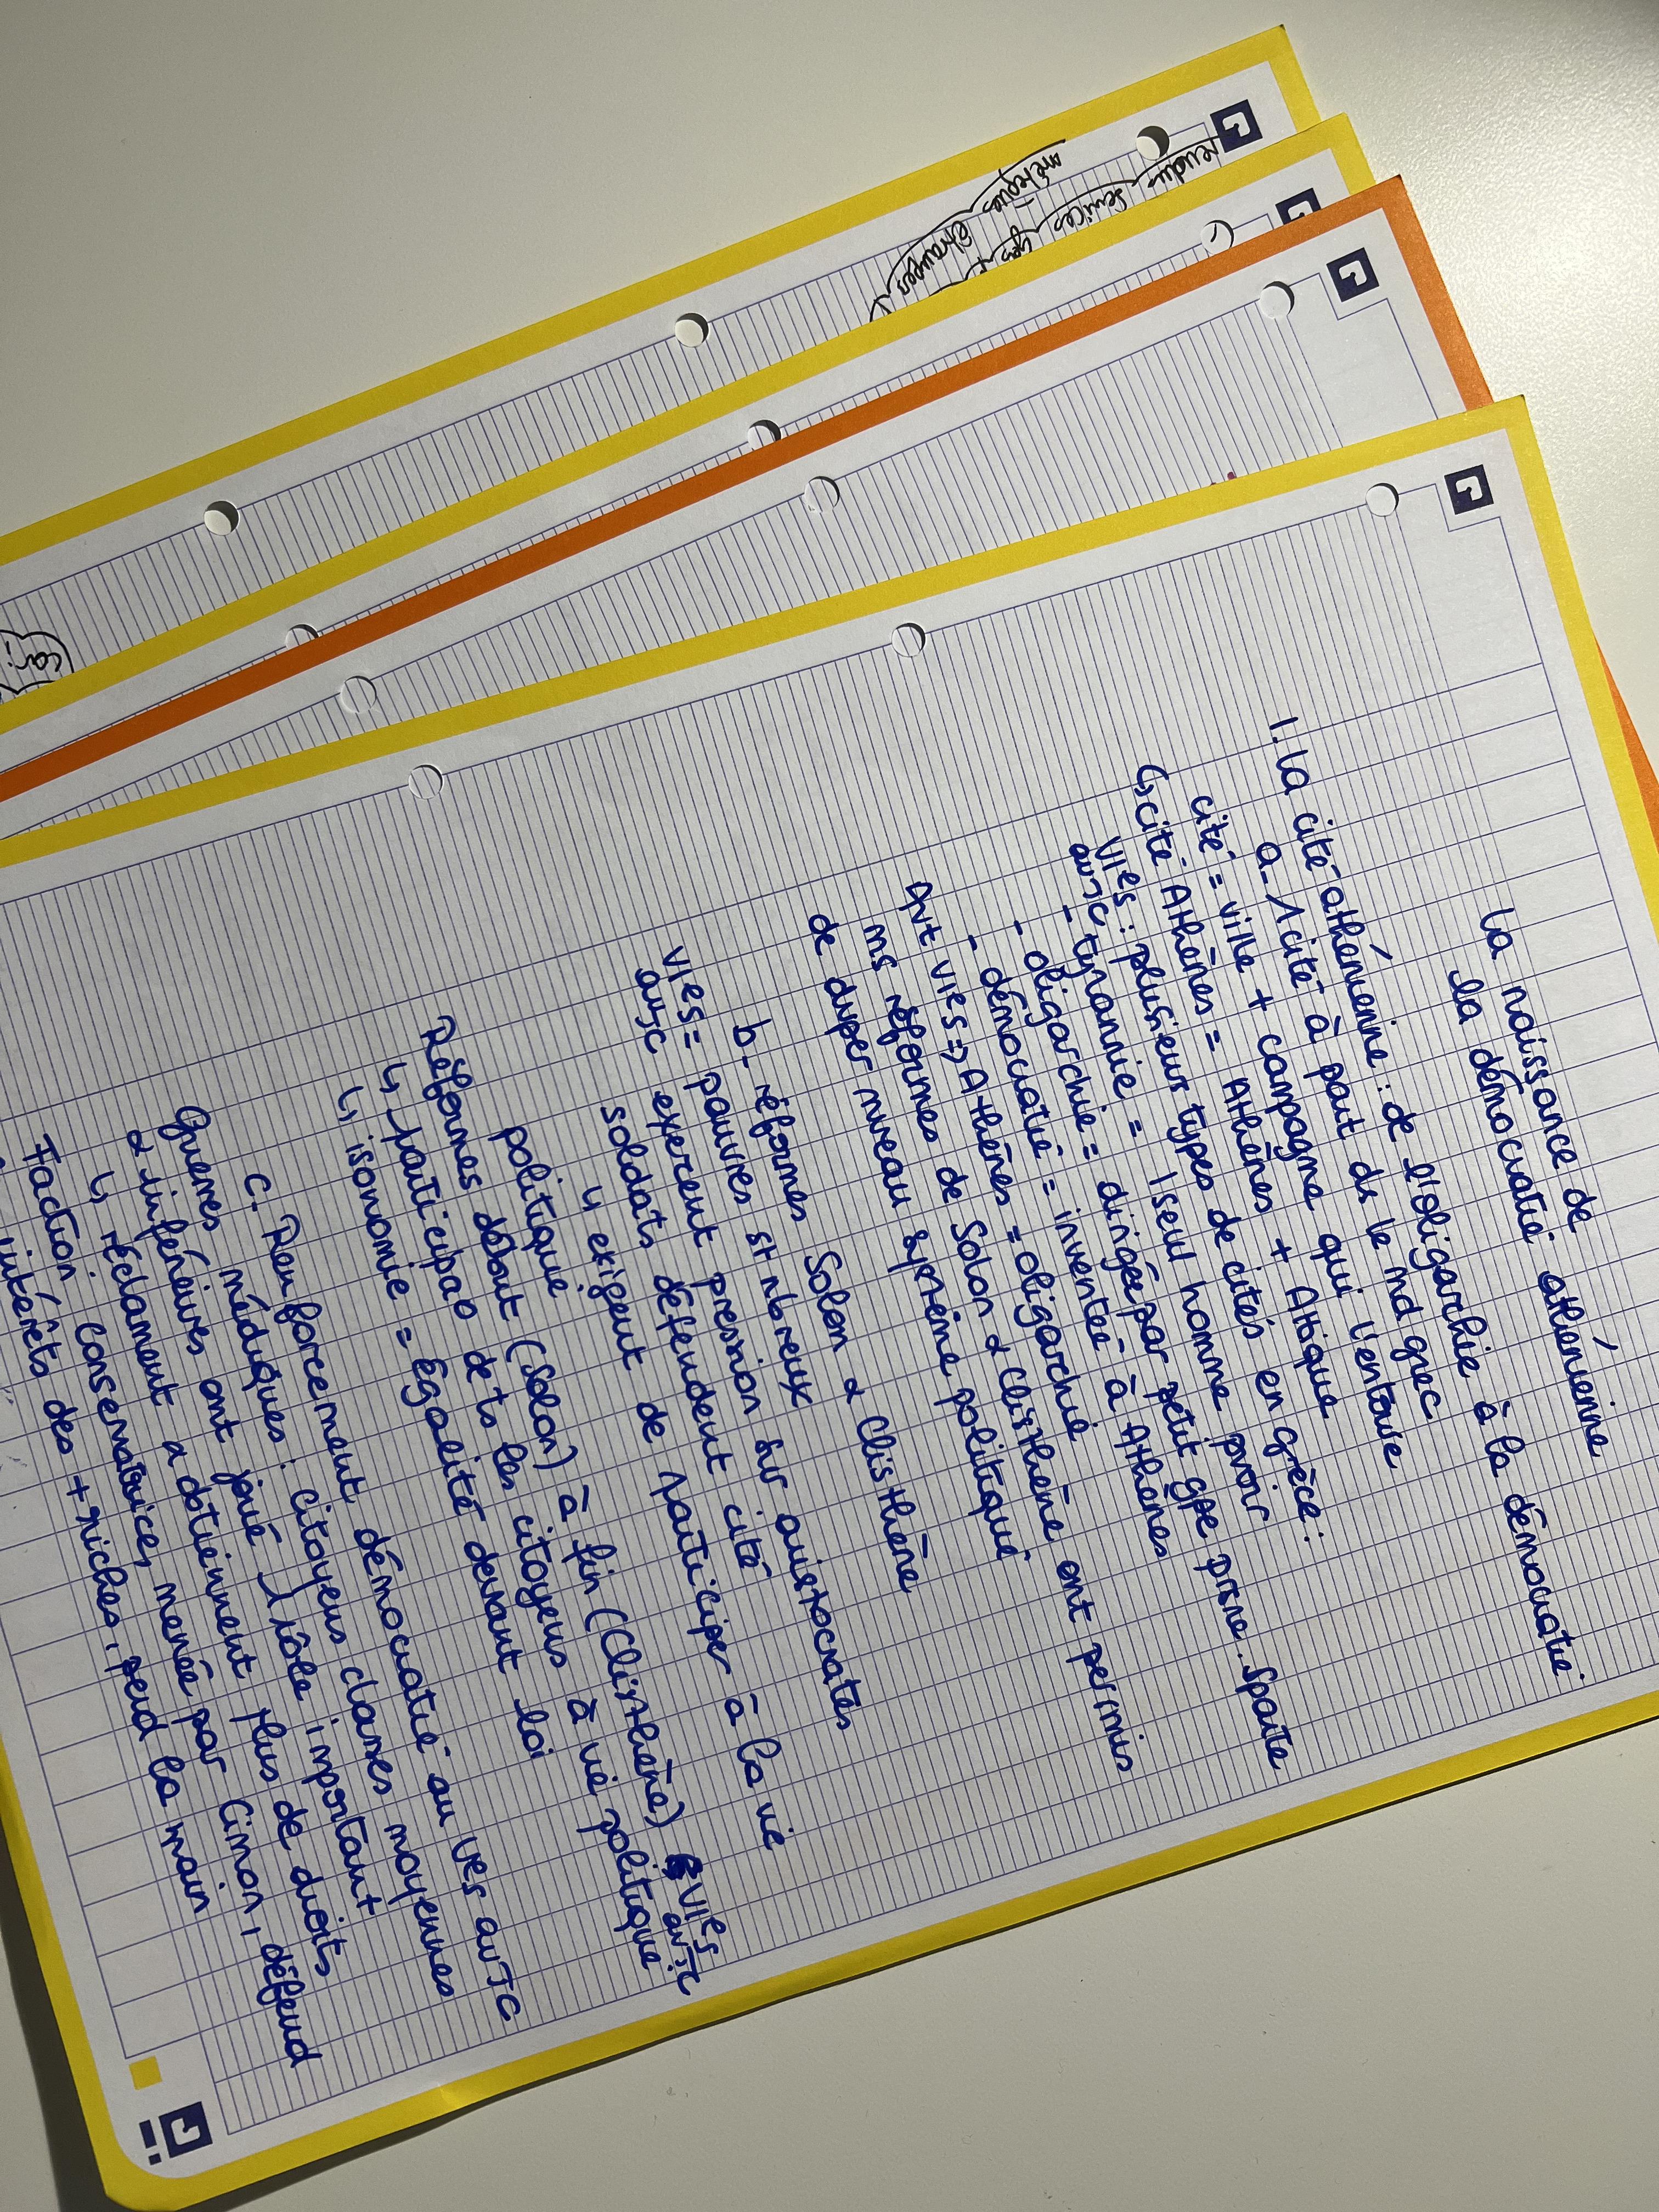 La naissance de
la démocratie athénienne
1. La cité athénienne : de l'oligarchie à la démocratie.
a- 1 cité à part ds le md grec
cité = ville + campagne qui l'entoure
↳ cité Athènes = Athènes + Attique
VIes : plusieurs types de cités en grèce :
avJC
- tyrannie = 1 seul homme pvoir
- oligarchie = dirigée par petit gpe prsne. Sparte
- démocratie = inventée à Athènes
Avt VIes => Athènes = oligarchie
ms réformes de Solon & Clisthène ont permis
de duper niveau système politique
b- réformes Solon & Clisthène
VIes = pauvres st nbreux
avJC exercent pression sur aristocrates
soldats défendent cité
↳ exigent de participer à la vie
politique
Réformes début (Solon) à fin (Clisthène) VIes avJC
↳ participao de ts les citoyens à vie politique
↳ isonomie = égalité devant loi
c- Renforcement démocratie au Ves avJC
Guerres médiques : citoyens classes moyennes
& inférieures ont joué 1 rôle important
↳ réclament & obtiennent plus de droits
Faction conservatrice, menée par Cimon, défend
intérêts des + riches, perd la main
rendu services
métèques
étrangers
car :